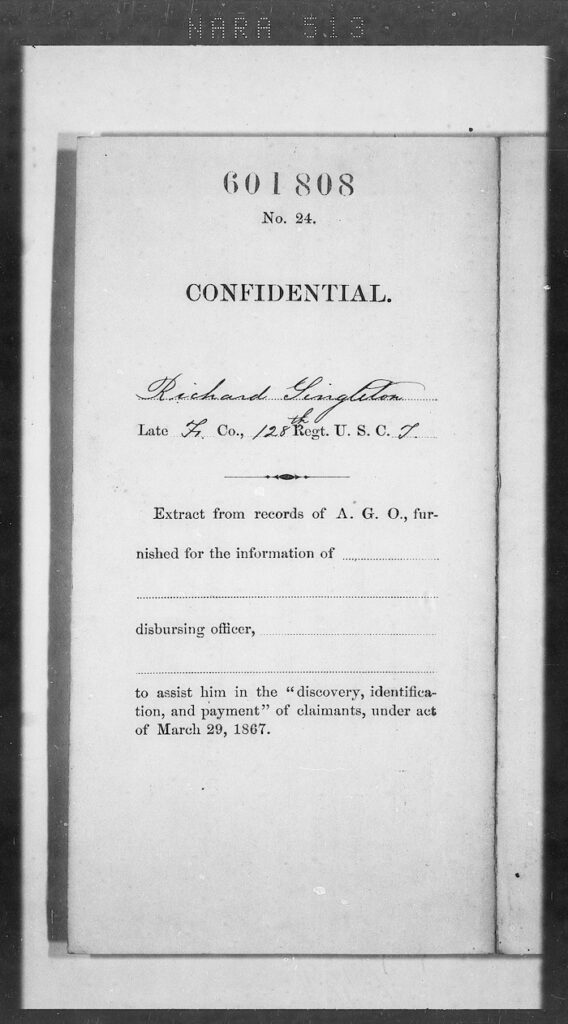 NARA 513
601808
No. 24.
CONFIDENTIAL.
Richard Singleton
Late F. Co., 128th Regt. U. S. C. T.
Extract from records of A. G. O., fur-
nished for the information of
disbursing officer,
to assist him in the "discovery, identifica-
tion, and payment" of claimants, under act
of March 29, 1867.